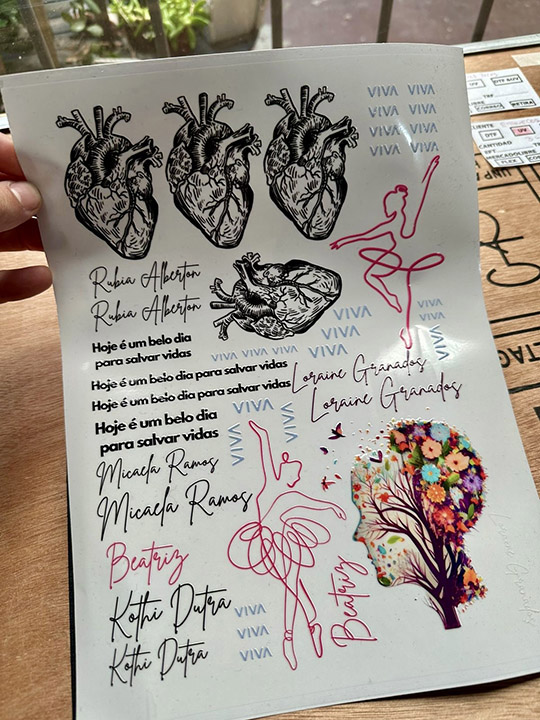 VIVA VIVA
VIVA VIVA
VIVA VIVA
VIVA VIVA
Rubia Alberton
Rubia Alberton
Hoje é um belo dia
para salvar vidas
VIVA VIVA VIVA
VIVA
VIVA
VIVA
VIVA
VIVA
VIVA
Hoje é um belo dia para salvar vidas
Hoje é um belo dia para salvar vidas
Loraine Granados
Loraine Granados
Hoje é um belo dia
para salvar vidas
VIVA
VIVA
VIVA
Micaela Ramos
Micaela Ramos
Beatriz
Beatriz
Kothi Dutra
Kothi Dutra
VIVA
VIVA
VIVA
Loraine Granados
DTF
UV
CANTIDAD
MERCADOLIBRE
FLEX
RETIRA